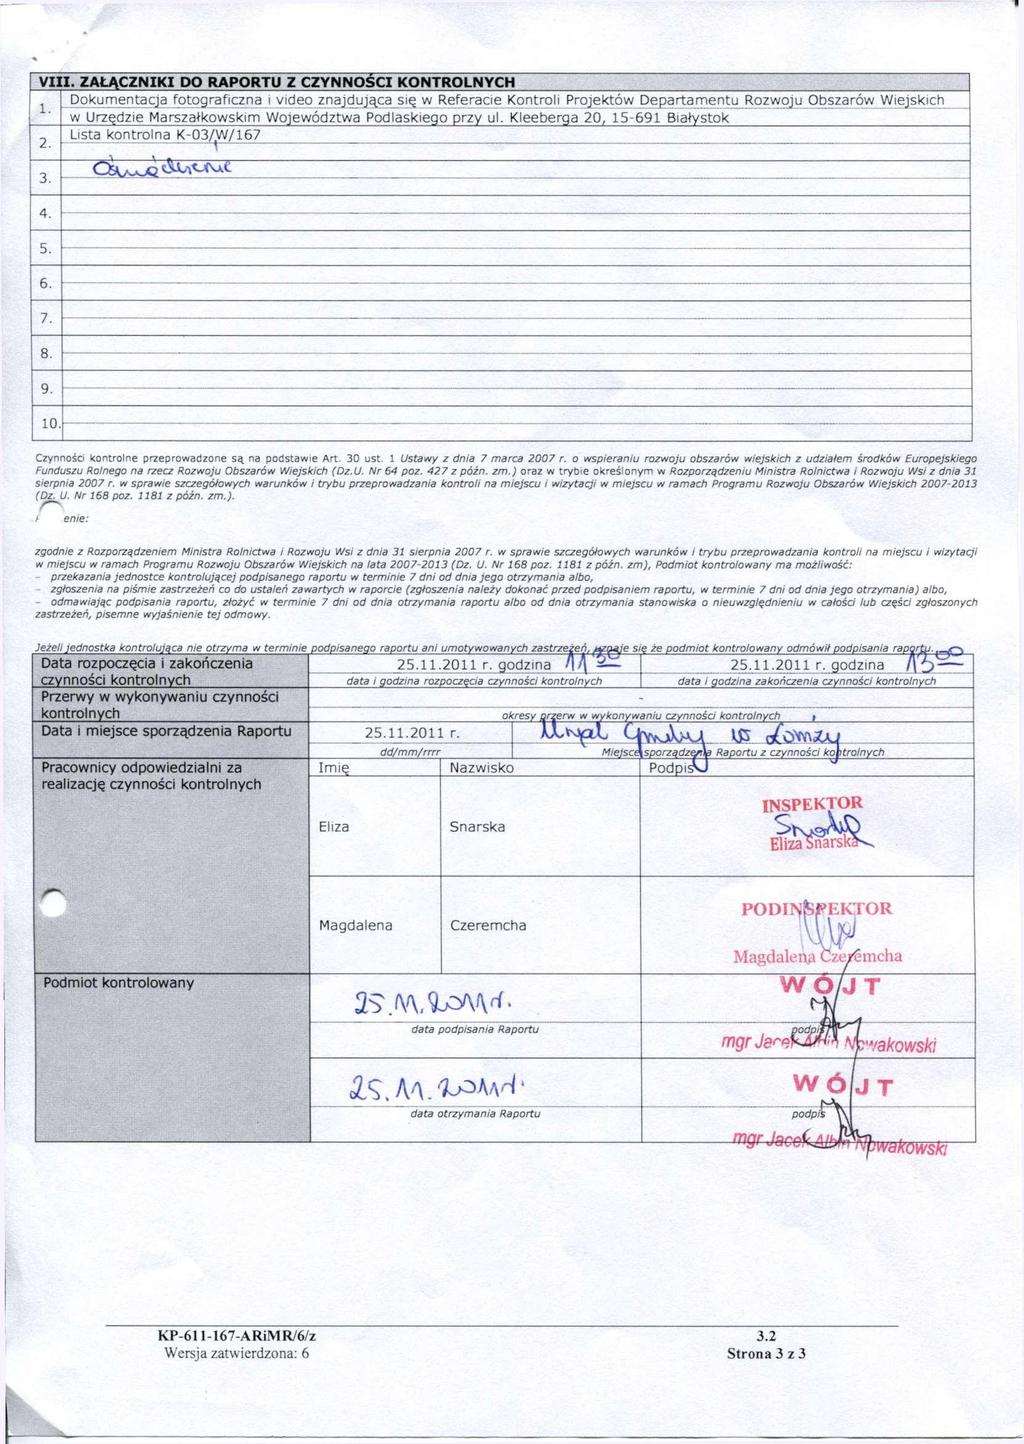 VIII. ZAŁĄCZNIKI DO RAPORTU Z CZYNNOŚCI KONTROLNYCH
1. Dokumentacja fotograficzna i video znajdująca się w Referacie Kontroli Projektów Departamentu Rozwoju Obszarów Wiejskich
w Urzędzie Marszałkowskim Województwa Podlaskiego przy ul. Kleeberga 20, 15-691 Białystok
2. Lista kontrolna K-03/W/167
3. Oświadczenie
4.
5.
6.
7.
8.
9.
10.
Czynności kontrolne przeprowadzone są na podstawie Art. 30 ust. 1 Ustawy z dnia 7 marca 2007 r. o wspieraniu rozwoju obszarów wiejskich z udziałem środków Europejskiego
Funduszu Rolnego na rzecz Rozwoju Obszarów Wiejskich (Dz.U. Nr 64 poz. 427 z późn. zm.) oraz w trybie określonym w Rozporządzeniu Ministra Rolnictwa i Rozwoju Wsi z dnia 31
sierpnia 2007 r. w sprawie szczegółowych warunków i trybu przeprowadzania kontroli na miejscu i wizytacji w miejscu w ramach Programu Rozwoju Obszarów Wiejskich 2007-2013
(Dz. U. Nr 168 poz. 1181 z późn. zm.).
enie:
zgodnie z Rozporządzeniem Ministra Rolnictwa i Rozwoju Wsi z dnia 31 sierpnia 2007 r. w sprawie szczegółowych warunków i trybu przeprowadzania kontroli na miejscu i wizytacji
w miejscu w ramach Programu Rozwoju Obszarów Wiejskich na lata 2007-2013 (Dz. U. Nr 168 poz. 1181 z późn. zm), Podmiot kontrolowany ma możliwość:
- przekazania jednostce kontrolującej podpisanego raportu w terminie 7 dni od dnia jego otrzymania albo,
- zgłoszenia na piśmie zastrzeżeń co do ustaleń zawartych w raporcie (zgłoszenia należy dokonać przed podpisaniem raportu, w terminie 7 dni od dnia jego otrzymania) albo,
- odmawiając podpisania raportu, złożyć w terminie 7 dni od dnia otrzymania raportu albo od dnia otrzymania stanowiska o nieuwzględnieniu w całości lub części zgłoszonych
zastrzeżeń, pisemne wyjaśnienie tej odmowy.
Jeżeli jednostka kontrolująca nie otrzyma w terminie podpisanego raportu ani umotywowanych zastrzeżeń, uznaje się że podmiot kontrolowany odmówił podpisania raportu.
Data rozpoczęcia i zakończenia czynności kontrolnych
25.11.2011 r. godzina 11 30
25.11.2011 r. godzina 13 00
data i godzina rozpoczęcia czynności kontrolnych
data i godzina zakończenia czynności kontrolnych
Przerwy w wykonywaniu czynności kontrolnych
-
okresy przerw w wykonywaniu czynności kontrolnych
Data i miejsce sporządzenia Raportu
25.11.2011 r.
Urząd Gminy w Łomży
dd/mm/rrrr
Miejsce sporządzenia Raportu z czynności kontrolnych
Pracownicy odpowiedzialni za realizację czynności kontrolnych
Imię Nazwisko Podpis
Eliza Snarska
INSPEKTOR
Eliza Snarska
Magdalena Czeremcha
PODINSPEKTOR
Magdalena Czeremcha
Podmiot kontrolowany
25.11.2011r.
WÓJT
data podpisania Raportu
podpis
mgr Jacek Albin Nowakowski
25.11.2011r.
WÓJT
data otrzymania Raportu
podpis
mgr Jacek Albin Nowakowski
KP-611-167-ARiMR/6/z
3.2
Wersja zatwierdzona: 6
Strona 3 z 3